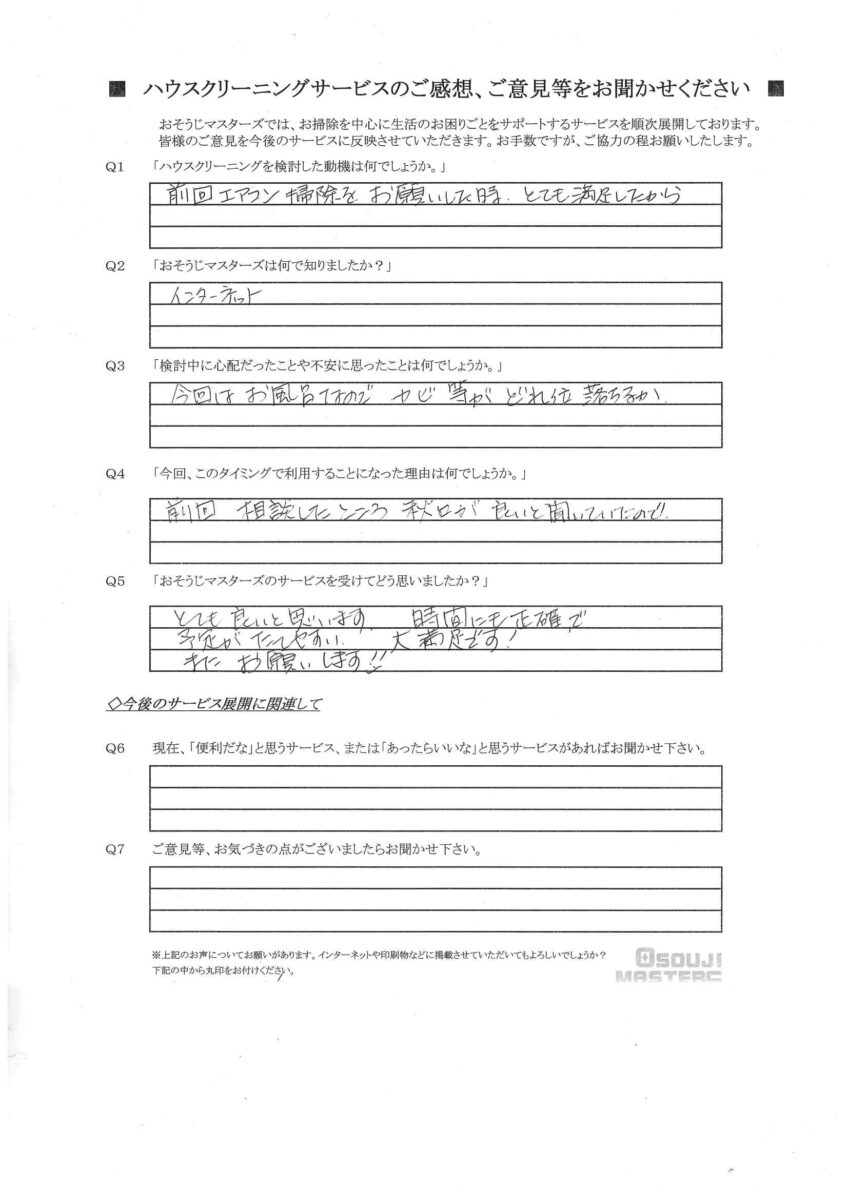 ■ ハウスクリーニングサービスのご感想、ご意見等をお聞かせください ■
おそうじマスターズでは、お掃除を中心に生活のお困りごとをサポートするサービスを順次展開しております。
皆様のご意見を今後のサービスに反映させていただきます。お手数ですが、ご協力の程お願いしたします。
Q1 「ハウスクリーニングを検討した動機は何でしょうか。」
前回エアコン掃除をお願いした時、とても満足したから
Q2 「おそうじマスターズは何で知りましたか？」
インターネット
Q3 「検討中に心配だったことや不安に思ったことは何でしょうか。」
今回はお風呂なので カビ等が どれ位 落ちるか、
Q4 「今回、このタイミングで利用することになった理由は何でしょうか。」
前回 相談したところ 秋口が 良いと聞いていたので、
Q5 「おそうじマスターズのサービスを受けてどう思いましたか？」
とても良いと思います。 時間にも正確で
予定が たてやすい。 大満足です！
また お願いします!!
◇今後のサービス展開に関連して
Q6 現在、「便利だな」と思うサービス、または「あったらいいな」と思うサービスがあればお聞かせ下さい。
Q7 ご意見等、お気づきの点がございましたらお聞かせ下さい。
※上記のお声についてお願いがあります。インターネットや印刷物などに掲載させていただいてもよろしいでしょうか？
下記の中から丸印をお付けください。
OSOUJI
MASTERS